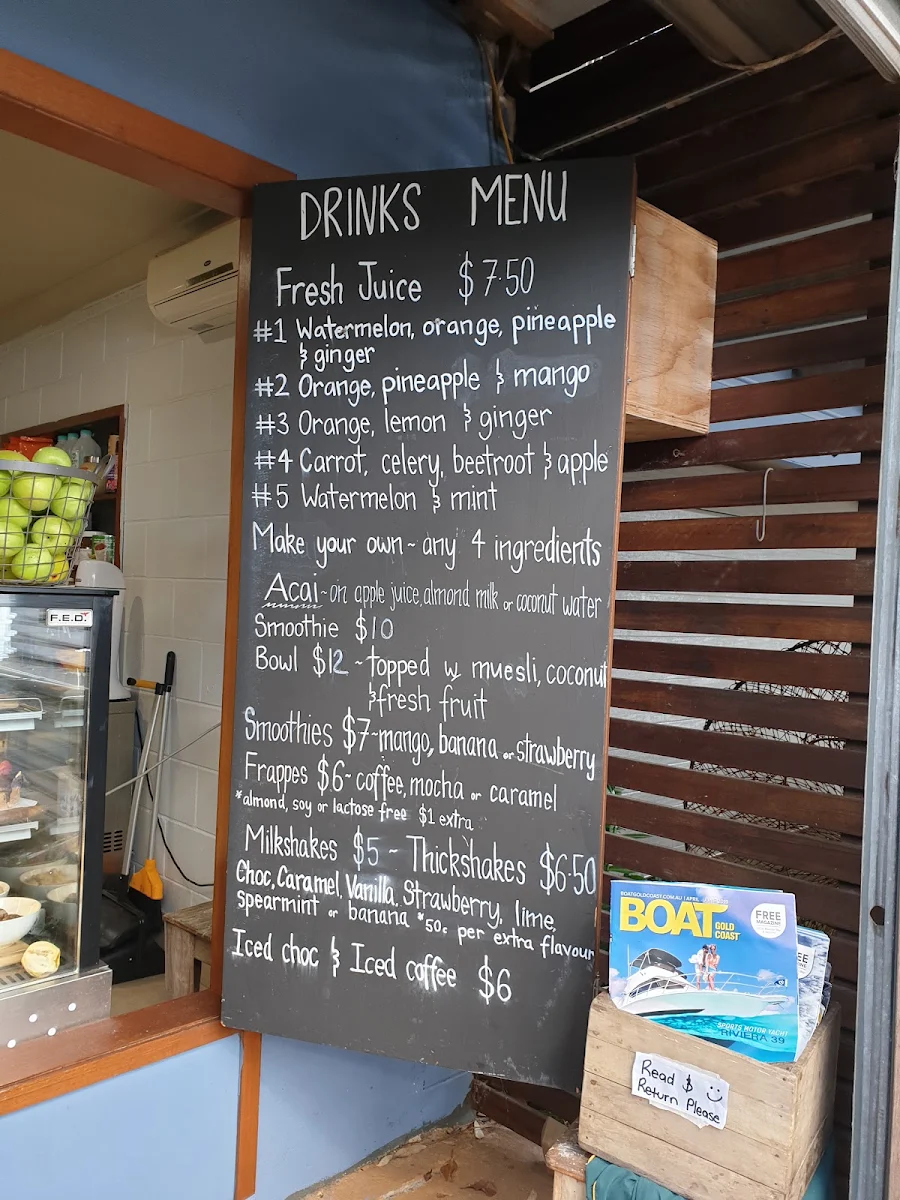 DRINKS MENU
Fresh Juice $7.50
#1 Watermelon, orange, pineapple
& ginger
#2 Orange, pineapple & mango
#3 Orange, lemon & ginger
#4 Carrot, celery, beetroot & apple
#5 Watermelon & mint
Make your own ~ any 4 ingredients
Acai ~ on apple juice, almond milk or coconut water
Smoothie $10
Bowl $12 ~ topped w muesli, coconut
& fresh fruit
Smoothies $7 ~ mango, banana or strawberry
Frappes $6 ~ coffee, mocha or caramel
*almond, soy or lactose free $1 extra
Milkshakes $5 ~ Thickshakes $6.50
Choc, Caramel, Vanilla, Strawberry, lime,
spearmint or banana *50c per extra flavour
Iced choc & Iced coffee $6
F.E.D.
BOATGOLDCOAST.COM.AU | APRIL
BOAT GOLD COAST
FREE
MAGAZINE
SPORTS MOTOR YACHT
RIVIERA 39
Read &
Return Please